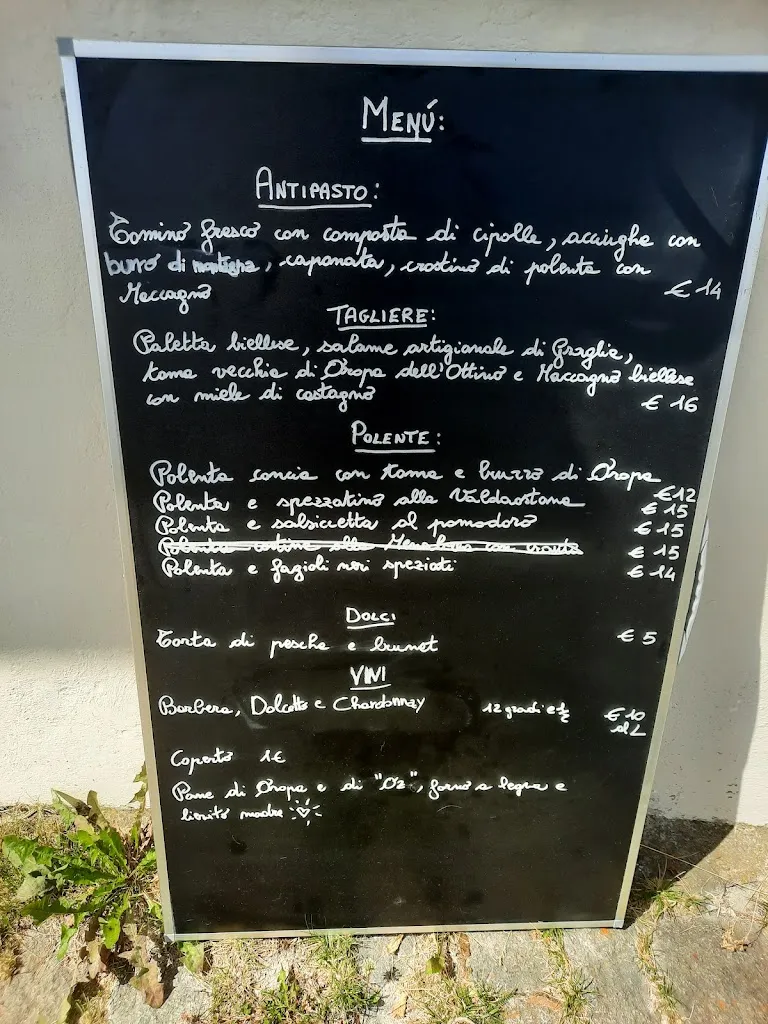 MENÚ:
ANTIPASTO:
Tomino fresco con composta di cipolle, acciughe con
burro di montagna, caponata, crostino di polenta con
Maccagno € 14
TAGLIERE:
Paletta biellese, salame artigianale di Graglia,
toma vecchia di Oropa dell'Ottino e Maccagno biellese
con miele di castagno € 16
POLENTE:
Polenta concia con toma e burro di Oropa €12
Polenta e spezzatino alla Valdaostana € 15
Polenta e salsiccetta al pomodoro € 15
Polenta con € 15
Polenta e fagioli neri speziati € 14
DOLCI
Torta di pesche e brunet € 5
VINI
Barbera, Dolcetto e Chardonnay 12 gradi e ½ € 10
al L
Coperto 1€
Pane di Oropa e di "Oz", forno a legna e
lievito madre